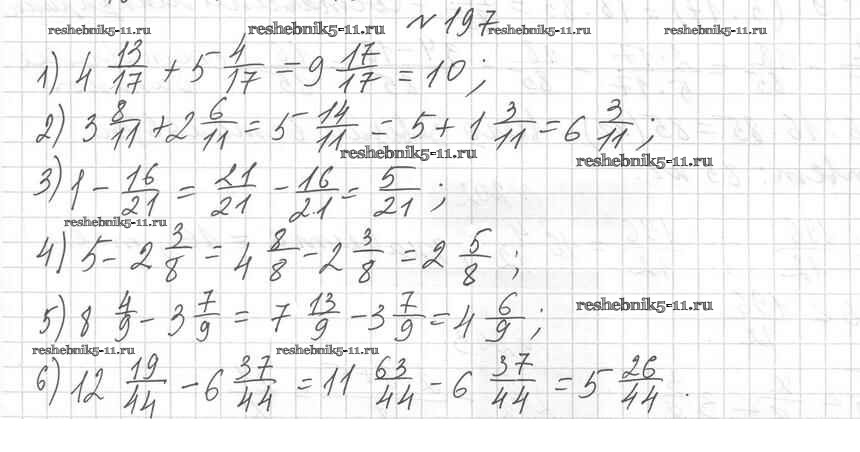 № 197
reshebnik5-11.ru reshebnik5-11.ru reshebnik5-11.ru reshebnik5-11.ru
1) 4 13/17 + 5 4/17 = 9 17/17 = 10;
2) 3 8/11 + 2 6/11 = 5 14/11 = 5 + 1 3/11 = 6 3/11;
reshebnik5-11.ru reshebnik5-11.ru
3) 1 - 16/21 = 21/21 - 16/21 = 5/21;
reshebnik5-11.ru
4) 5 - 2 3/8 = 4 8/8 - 2 3/8 = 2 5/8;
reshebnik5-11.ru
5) 8 4/9 - 3 7/9 = 7 13/9 - 3 7/9 = 4 6/9;
reshebnik5-11.ru reshebnik5-11.ru
6) 12 19/44 - 6 37/44 = 11 63/44 - 6 37/44 = 5 26/44.